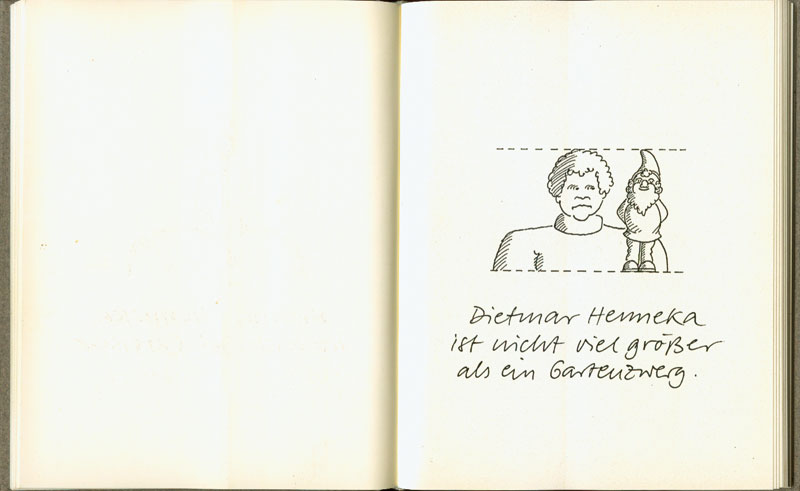 Dietmar Henneka
ist nicht viel größer
als ein Gartenzwerg.